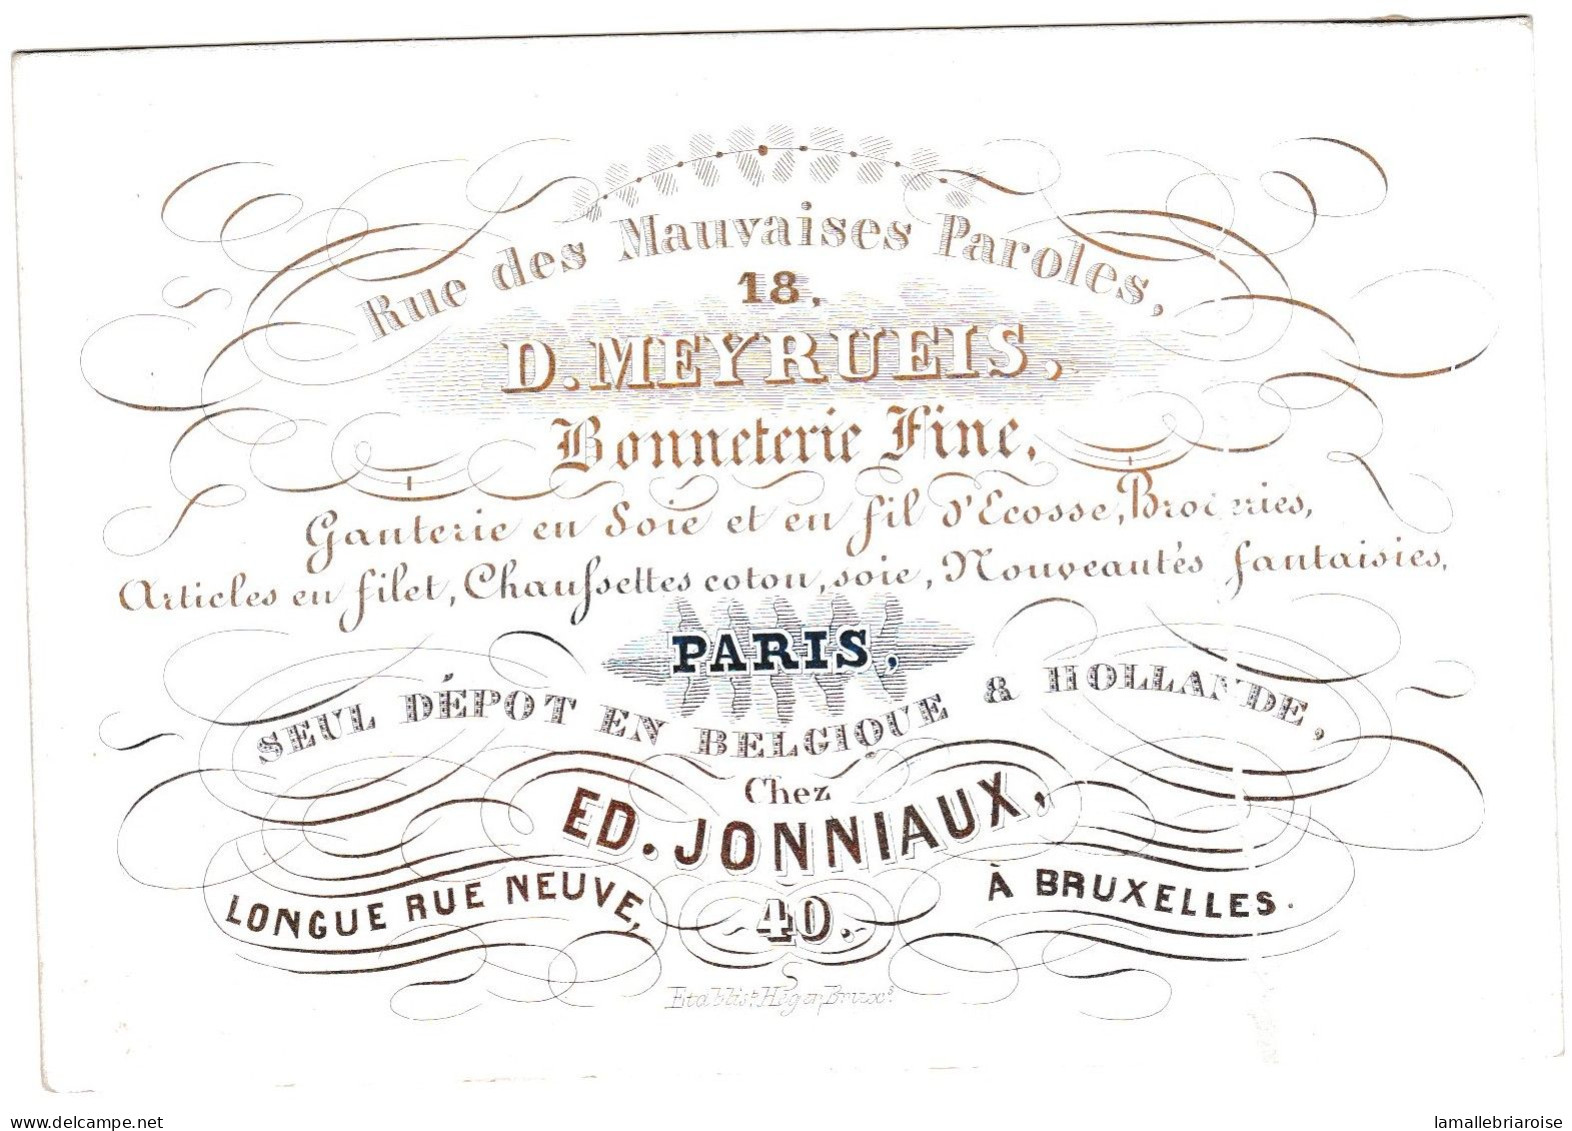 Rue des Mauvaises Paroles,
18,
D. MEYRUEIS,
Bonneterie Fine,
Ganterie en Soie et en fil d'Ecosse, Broderies,
Articles en filet, Chaussettes coton, soie, Nouveautés fantaisies,
PARIS,
SEUL DÉPOT EN BELGIQUE & HOLLANDE,
Chez
ED. JONNIAUX,
LONGUE RUE NEUVE, 40. À BRUXELLES.
Etablist. Hégen, Bruxs.
www.delcampe.net
lamallebriaroise